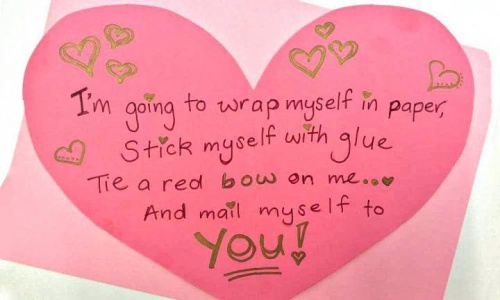 I'm going to wrap myself in paper,
Stick myself with glue
Tie a red bow on me...
And mail myself to
YOU!